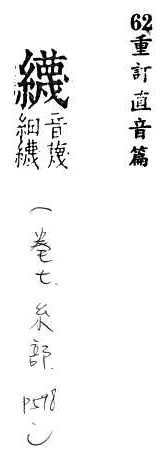 62重訂直音篇
纎
音蔑
細纎
(卷七.糸部.P598)